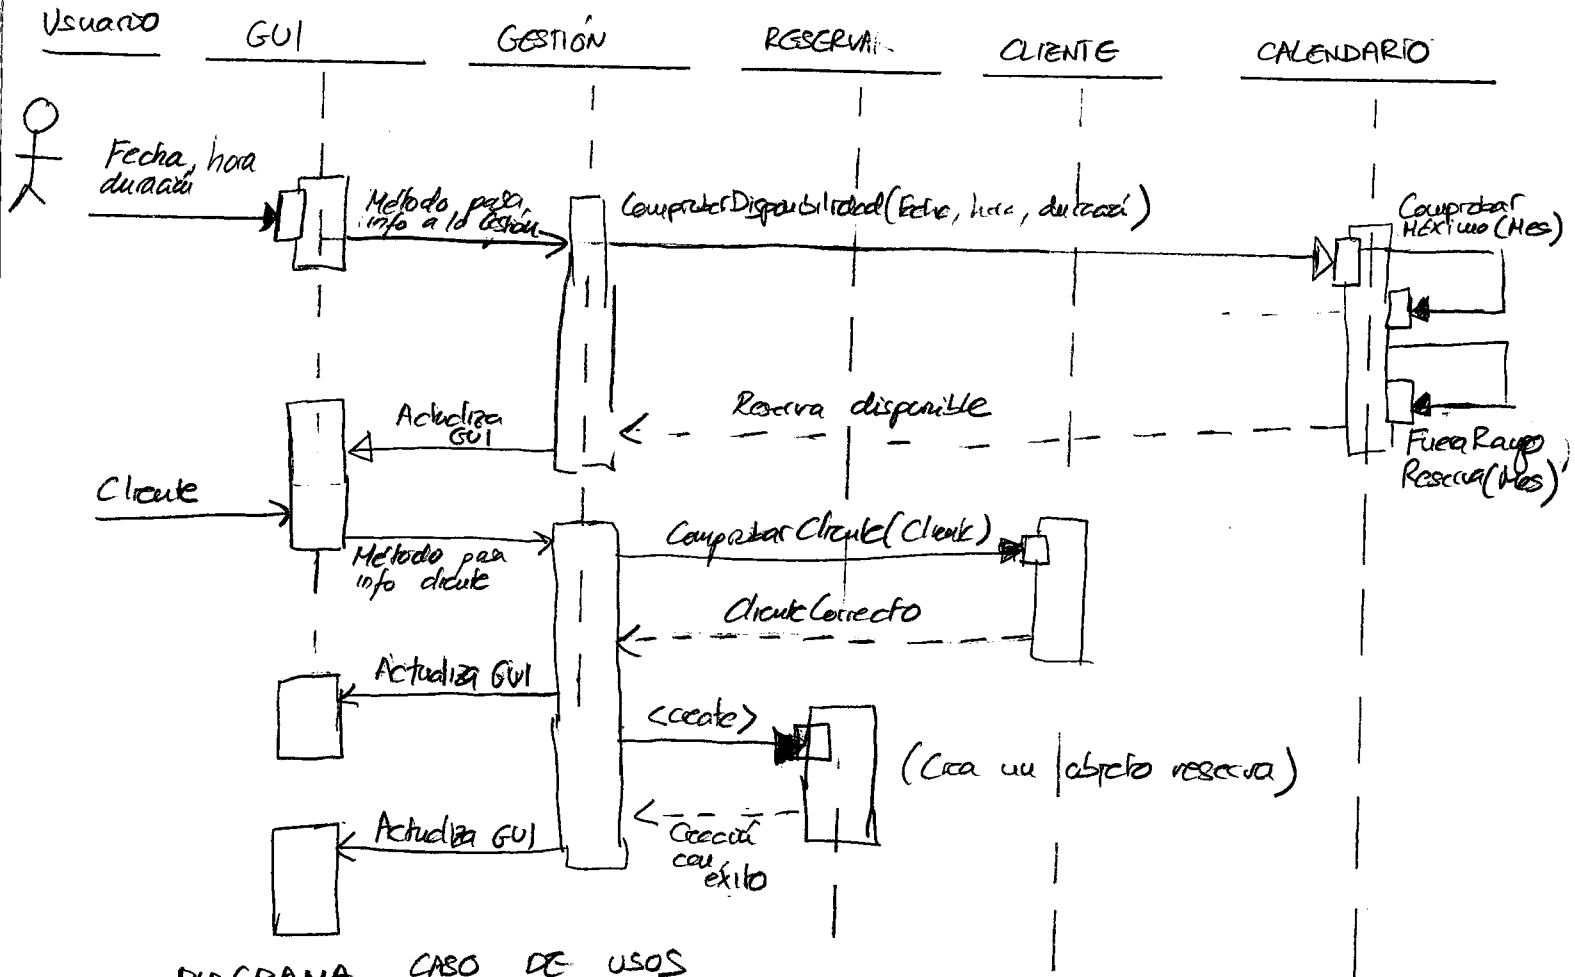 Usuario
GUI
GESTIÓN
RESERVA
CLIENTE
CALENDARIO
Fecha, hora
duración
Método pasa
info a la Gestión
ComprobarDisponibilidad(Fecha, hora, duración)
Comprobar
MÉXimo(Mes)
Actualiza
GUI
Reserva disponible
FueraRango
Reserva(Mes)
Cliente
Método pasa
info cliente
ComprobarCliente(Client)
ClienteCorrecto
Actualiza GUI
<create>
(Crea un objeto reserva)
Actualiza GUI
Creación
con
éxito
DIAGRAMA CASO DE USOS